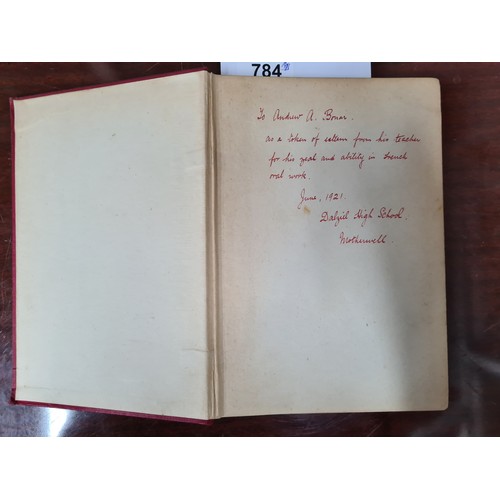 784
To Andrew A. Bonar.
as a token of esteem from his teacher
for his zeal and ability in French
oral work.
June, 1921.
Dalziel High School.
Motherwell.